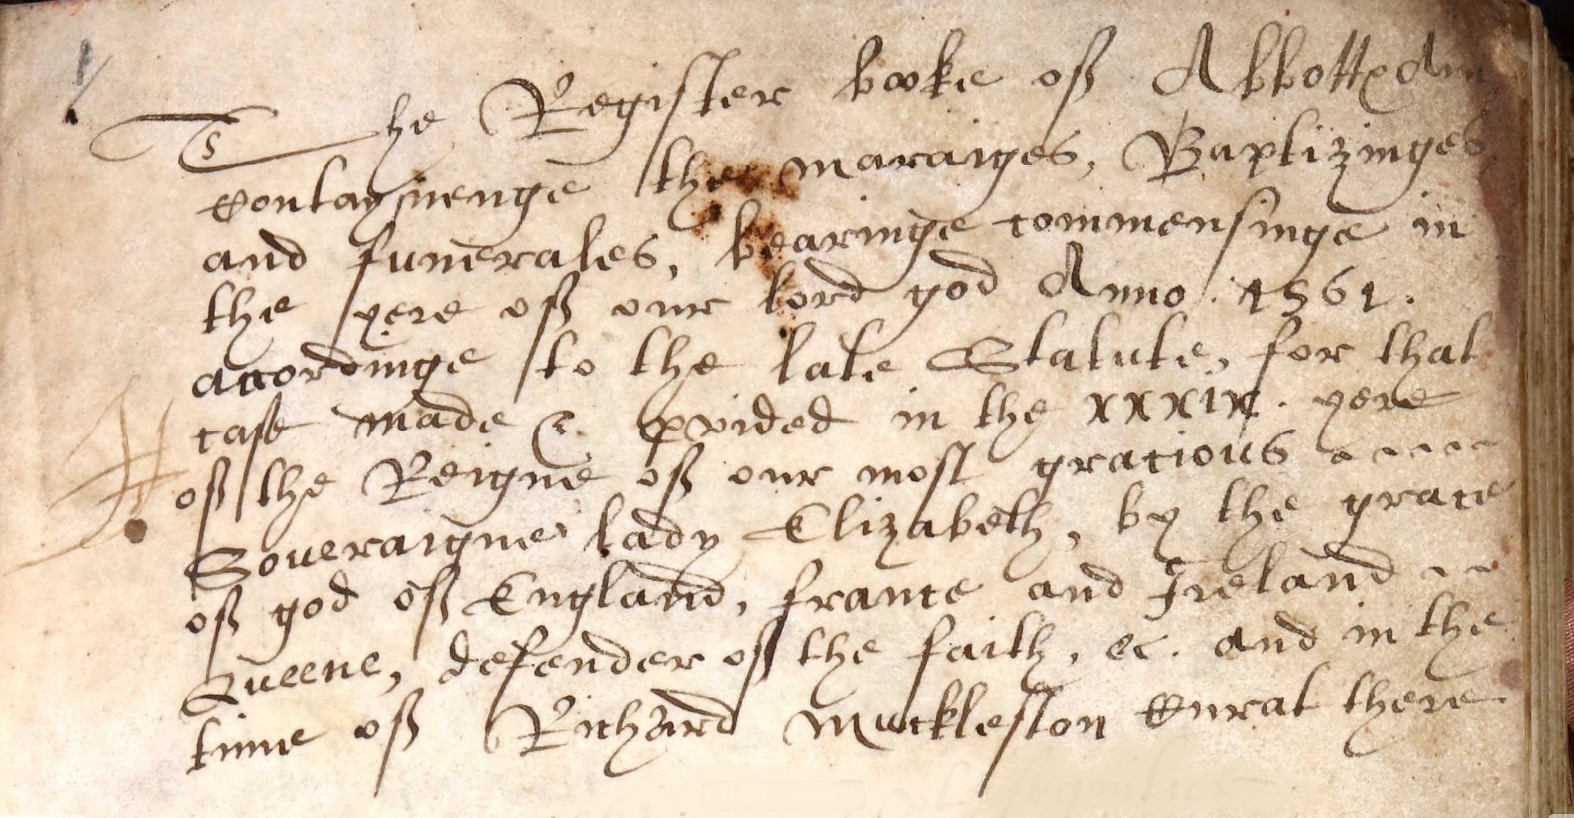 The Register booke off Abbotts Ann
Contaynenge the maraiges, Baptizinges
and funerales, bearinge commensinge in
the yere off our lord god Anno. 1561.
accordinge to the late Statute, for that
case made & pvided in the xxxix. yere
off the Reigne off our most gracious
Soueraigne lady Elizabeth, by the grace
off god off England, france and Ireland
Queene, defender off the faith, &c. and in the
time off Richard Muckleston Curat there